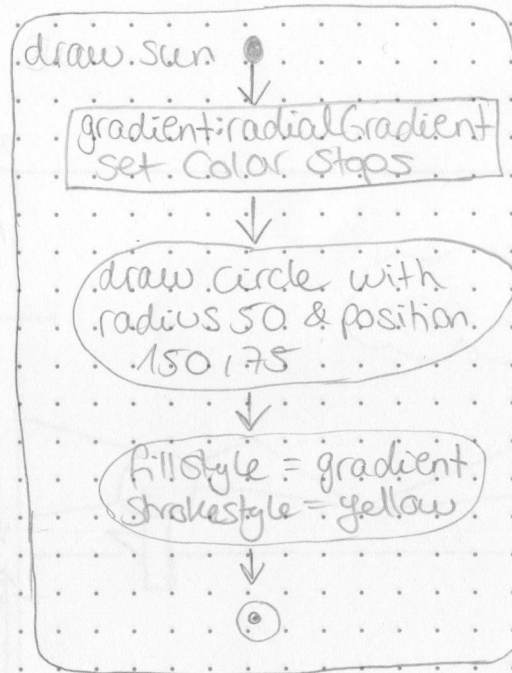 draw sun
gradient:radialGradient
set Color Stops
draw circle with
radius 50 & position
150,75
fillstyle = gradient
strokestyle = yellow